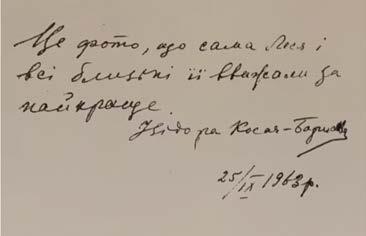 Це фото, що сама Леся і
всі близькі її вважали за
найкраще.
Ізідора Косач-Борисова
25/IX 1963 р.